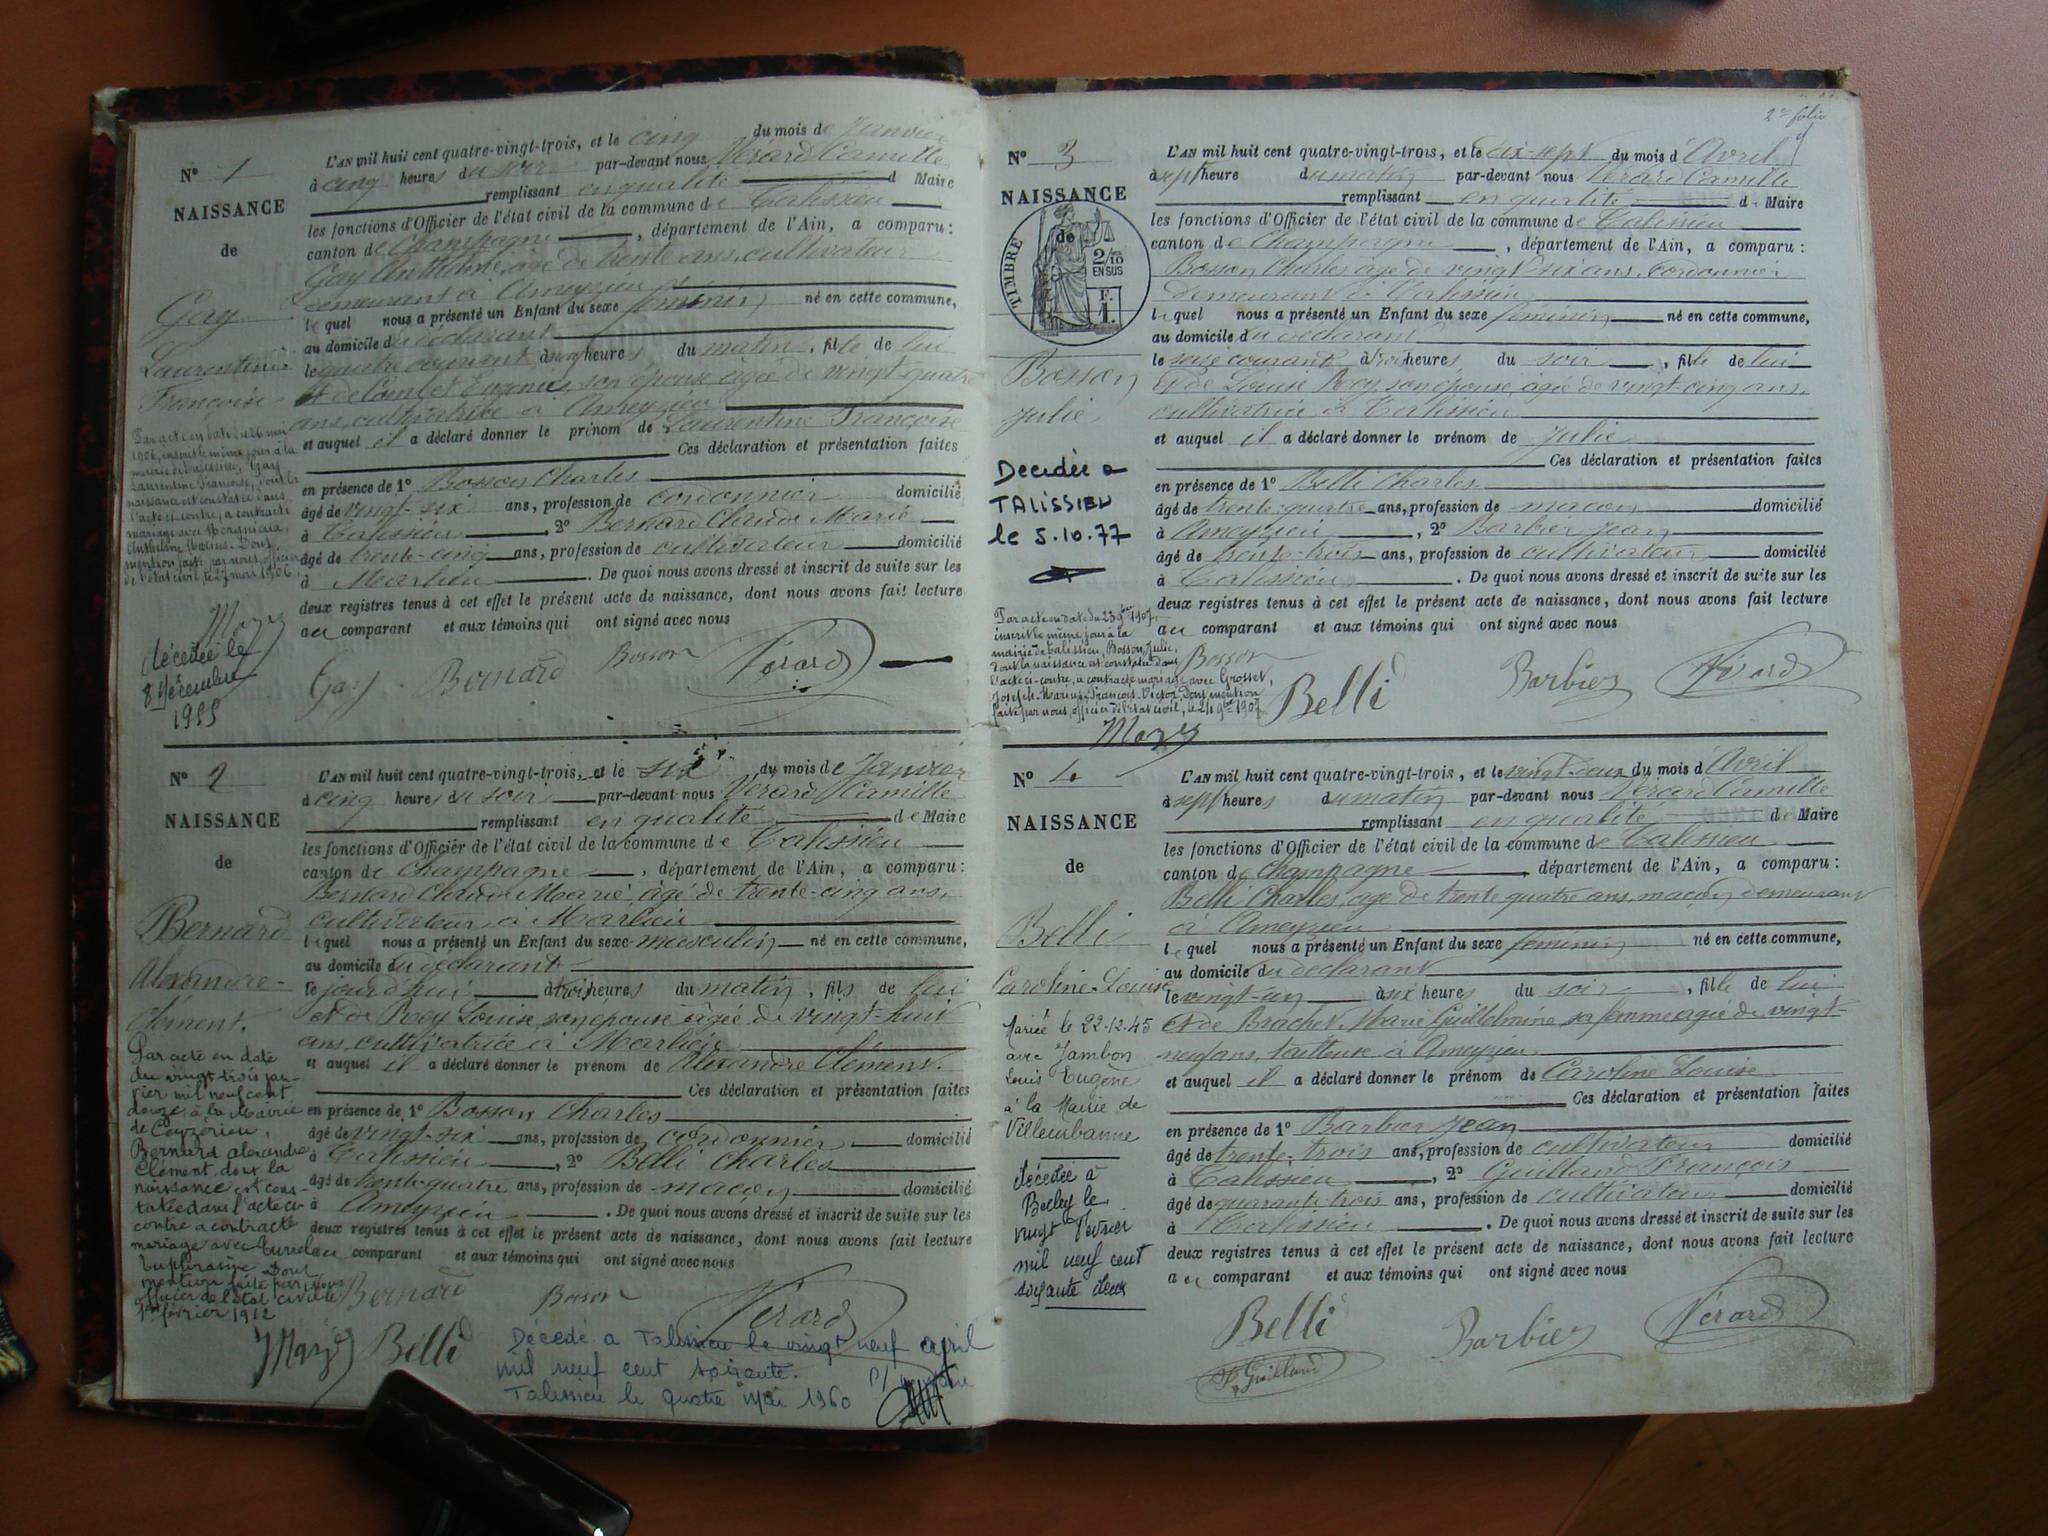 N° 1
NAISSANCE
de
Gay
Laurentine
Françoise
L'AN mil huit cent quatre-vingt-trois, et le cinq du mois de Janvier
à cinq heures du soir par-devant nous Vérard Camille
remplissant en qualité d Maire
les fonctions d'Officier de l'état civil de la commune de Talissieu
canton de Champagne, département de l'Ain, a comparu :
Gay Anthelme, âgé de trente ans, cultivateur
demeurant à Ameyzieu
lequel nous a présenté un Enfant du sexe féminin né en cette commune,
au domicile du déclarant
le quatre courant à heures du matin, fille de lui
et de Eugénie, son épouse âgée de vingt quatre
ans, cultivatrice à Ameyzieu
et auquel il a déclaré donner le prénom de Laurentine Françoise
Ces déclaration et présentation faites
en présence de 1° Bosson Charles
âgé de vingt-six ans, profession de cordonnier domicilié
à Talissieu, 2° Bernard Claude Marie
âgé de trente-cinq ans, profession de cultivateur domicilié
à Marlieu. De quoi nous avons dressé et inscrit de suite sur les
deux registres tenus à cet effet le présent acte de naissance, dont nous avons fait lecture
au comparant et aux témoins qui ont signé avec nous
Par acte en date du 26 mai
1906, inscrit le même jour à la
mairie de Talissieu, Gay
Laurentine Françoise, dont la
naissance est constatée dans
l'acte ci-contre, a contracté
mariage avec
Anthelme Marius. Dont
mention faite par nous, officier
de l'état civil, le 27 mai 1906.
décédée le
8 décembre
Gay Bernard Bosson Vérard
N° 2
NAISSANCE
de
Bernard
Alexandre-
Clément.
L'AN mil huit cent quatre-vingt-trois, et le six du mois de Janvier
à cinq heures du soir par-devant nous Vérard Camille
remplissant en qualité de Maire
les fonctions d'Officier de l'état civil de la commune de Talissieu
canton de Champagne, département de l'Ain, a comparu :
Bernard Claude Marie âgé de trente-cinq ans,
cultivateur à Marlieu
lequel nous a présenté un Enfant du sexe masculin né en cette commune,
au domicile du déclarant
le jourd'hui à trois heures du matin, fils de lui
et de Rey Louise son épouse âgée de vingt-huit
ans, cultivatrice à Marlieu
et auquel il a déclaré donner le prénom de Alexandre Clément.
Ces déclaration et présentation faites
en présence de 1° Bosson Charles
âgé de vingt-six ans, profession de cordonnier domicilié
à Talissieu, 2° Belli Charles
âgé de trente-quatre ans, profession de maçon domicilié
à Ameyzieu. De quoi nous avons dressé et inscrit de suite sur les
deux registres tenus à cet effet le présent acte de naissance, dont nous avons fait lecture
au comparant et aux témoins qui ont signé avec nous
Par acte en date
du vingt-trois jan-
vier mil neuf cent
douze, à la Mairie
de Ceyzérieu,
Bernard Alexandre
Clément, dont la
naissance est cons-
tatée dans l'acte ci-
contre a contracté
mariage avec
Euphrasine Dont
mention faite par nous
officier de l'état civil le
1er février 1912
Bernard Bosson Vérard
Belli
Décédé à Talissieu le vingt neuf avril
mil neuf cent soixante.
Talissieu le quatre mai 1960
2e folio
N° 3
NAISSANCE
de
TIMBRE
2/10 EN SUS
F. 1.
Bosson
Julie
L'AN mil huit cent quatre-vingt-trois, et le dix-sept du mois d'Avril
à sept heure du matin par-devant nous Vérard Camille
remplissant en qualité de Maire
les fonctions d'Officier de l'état civil de la commune de Talissieu
canton de Champagne, département de l'Ain, a comparu :
Bosson Charles âgé de vingt six ans, cordonnier
demeurant à Talissieu
lequel nous a présenté un Enfant du sexe féminin né en cette commune,
au domicile du déclarant
le seize courant à trois heures du soir, fille de lui
et de Louise Rey, son épouse, âgée de vingt-cinq ans,
cultivatrice à Talissieu
et auquel il a déclaré donner le prénom de Julie
Ces déclaration et présentation faites
en présence de 1° Belli Charles
âgé de trente-quatre ans, profession de maçon domicilié
à Ameyzieu, 2° Barbier Jean
âgé de trente-trois ans, profession de cultivateur domicilié
à Talissieu. De quoi nous avons dressé et inscrit de suite sur les
deux registres tenus à cet effet le présent acte de naissance, dont nous avons fait lecture
au comparant et aux témoins qui ont signé avec nous
Décédée à
TALISSIEU
le 5.10.77
Par acte en date du 23 9bre 1907
inscrit le même jour à la
mairie de Talissieu, Bosson Julie,
dont la naissance est constatée dans
l'acte ci-contre, a contracté mariage avec Grosset,
Joseph-Marius-François-Victor. Dont mention
faite par nous, officier de l'état civil, le 24 9bre 1907
Bosson Belli Barbier Vérard
N° 4
NAISSANCE
de
Belli
Caroline-Louise
L'AN mil huit cent quatre-vingt-trois, et le vingt-deux du mois d'Avril
à sept heures du matin par-devant nous Vérard Camille
remplissant en qualité de Maire
les fonctions d'Officier de l'état civil de la commune de Talissieu
canton de Champagne, département de l'Ain, a comparu :
Belli Charles, âgé de trente quatre ans, maçon, demeurant
à Ameyzieu
lequel nous a présenté un Enfant du sexe féminin né en cette commune,
au domicile du déclarant
le vingt-un à six heures du soir, fille de lui
et de Brachet Marie Guillelmine sa femme âgée de vingt-
neuf ans, tailleuse à Ameyzieu
et auquel il a déclaré donner le prénom de Caroline Louise
Ces déclaration et présentation faites
en présence de 1° Barbier Jean
âgé de trente-trois ans, profession de cultivateur domicilié
à Talissieu, 2° Guilland François
âgé de quarante-trois ans, profession de cultivateur domicilié
à Talissieu. De quoi nous avons dressé et inscrit de suite sur les
deux registres tenus à cet effet le présent acte de naissance, dont nous avons fait lecture
au comparant et aux témoins qui ont signé avec nous
Mariée le 22-12-45
avec Jambon
Louis Eugène
à la Mairie de
Villeurbanne
décédée à
Belley le
vingt février
mil neuf cent
soixante deux
Belli Barbier Vérard
Guilland